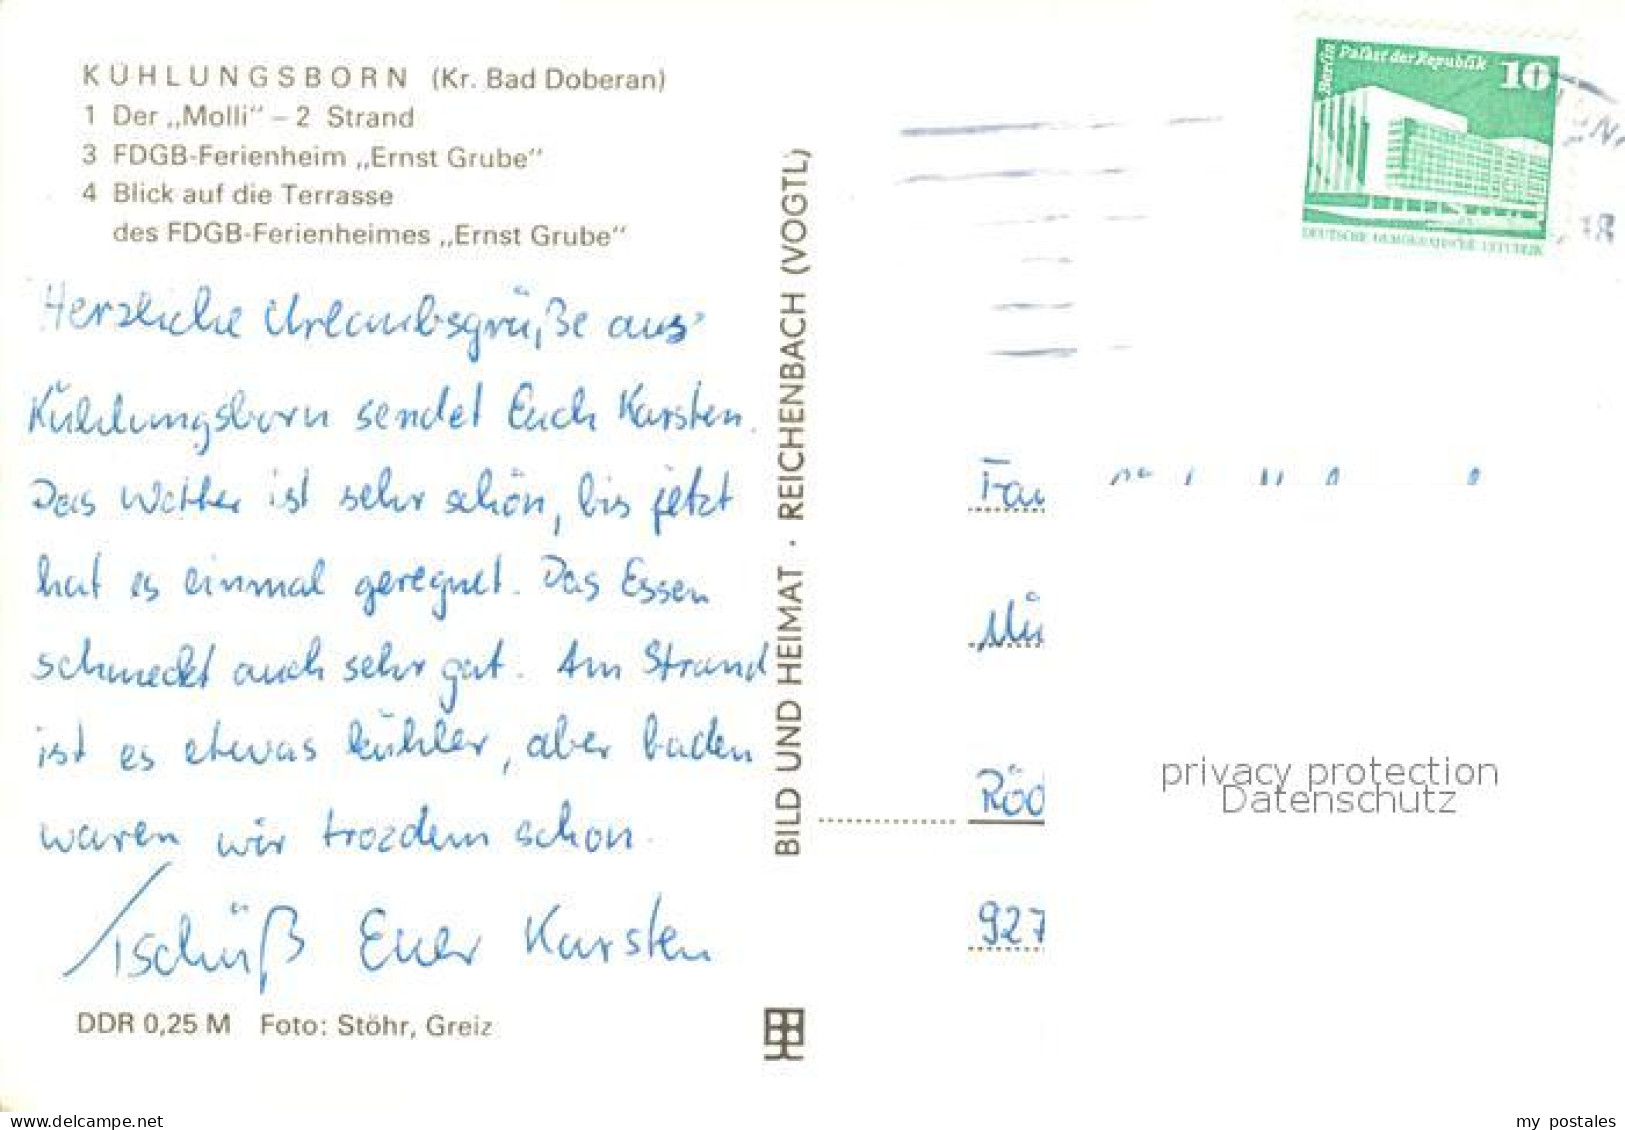 KÜHLUNGSBORN (Kr. Bad Doberan)
1 Der „Molli" – 2 Strand
3 FDGB-Ferienheim „Ernst Grube"
4 Blick auf die Terrasse
des FDGB-Ferienheimes „Ernst Grube"
Herzliche Urlaubsgrüße aus
Kühlungsborn sendet Euch Karsten.
Das Wetter ist sehr schön, bis jetzt
hat es einmal geregnet. Das Essen
schmeckt auch sehr gut. Am Strand
ist es etwas kühler, aber baden
waren wir trozdem schon.
Tschüß Euer Karsten
DDR 0,25 M Foto: Stöhr, Greiz
BILD UND HEIMAT · REICHENBACH (VOGTL)
Berlin Palast der Republik 10
DEUTSCHE DEMOKRATISCHE REPUBLIK
18
Fam
Röd
927
privacy protection
Datenschutz
www.delcampe.net
my_postales